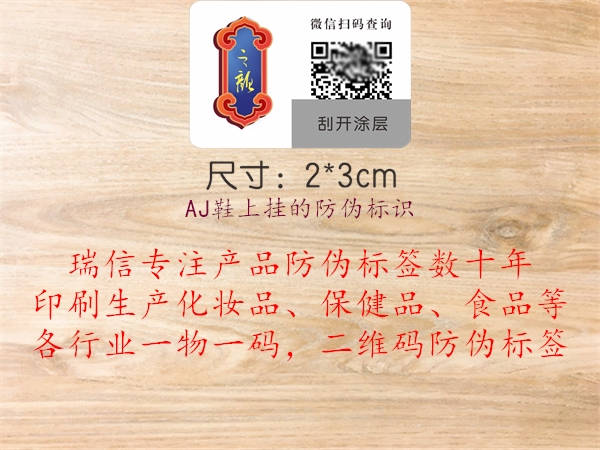 微信扫码查询
刮开涂层
尺寸：2*3cm
AJ鞋上挂的防伪标识
瑞信专注产品防伪标签数十年
印刷生产化妆品、保健品、食品等
各行业一物一码，二维码防伪标签